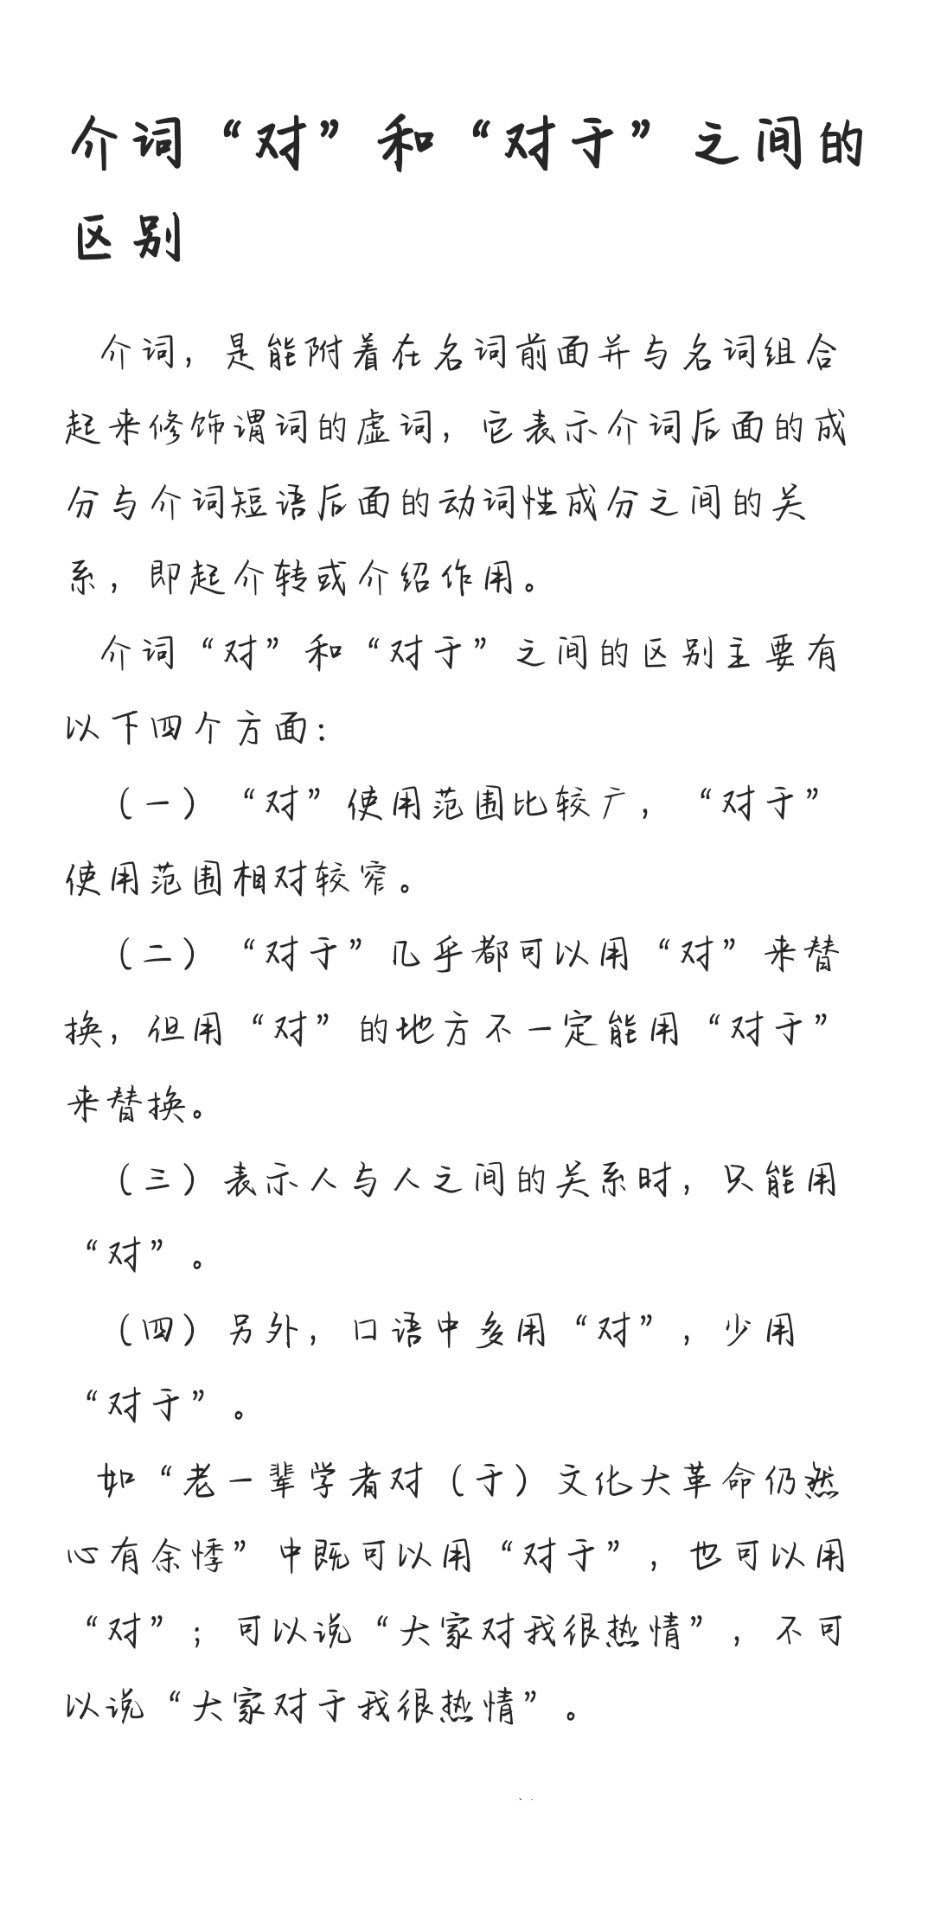 介词“对”和“对于”之间的
区别
介词，是能附着在名词前面并与名词组合
起来修饰谓词的虚词，它表示介词后面的成
分与介词短语后面的动词性成分之间的关
系，即起介转或介绍作用。
介词“对”和“对于”之间的区别主要有
以下四个方面：
（一）“对”使用范围比较广，“对于”
使用范围相对较窄。
（二）“对于”几乎都可以用“对”来替
换，但用“对”的地方不一定能用“对于”
来替换。
（三）表示人与人之间的关系时，只能用
“对”。
（四）另外，口语中多用“对”，少用
“对于”。
如“老一辈学者对（于）文化大革命仍然
心有余悸”中既可以用“对于”，也可以用
“对”；可以说“大家对我很热情”，不可
以说“大家对于我很热情”。